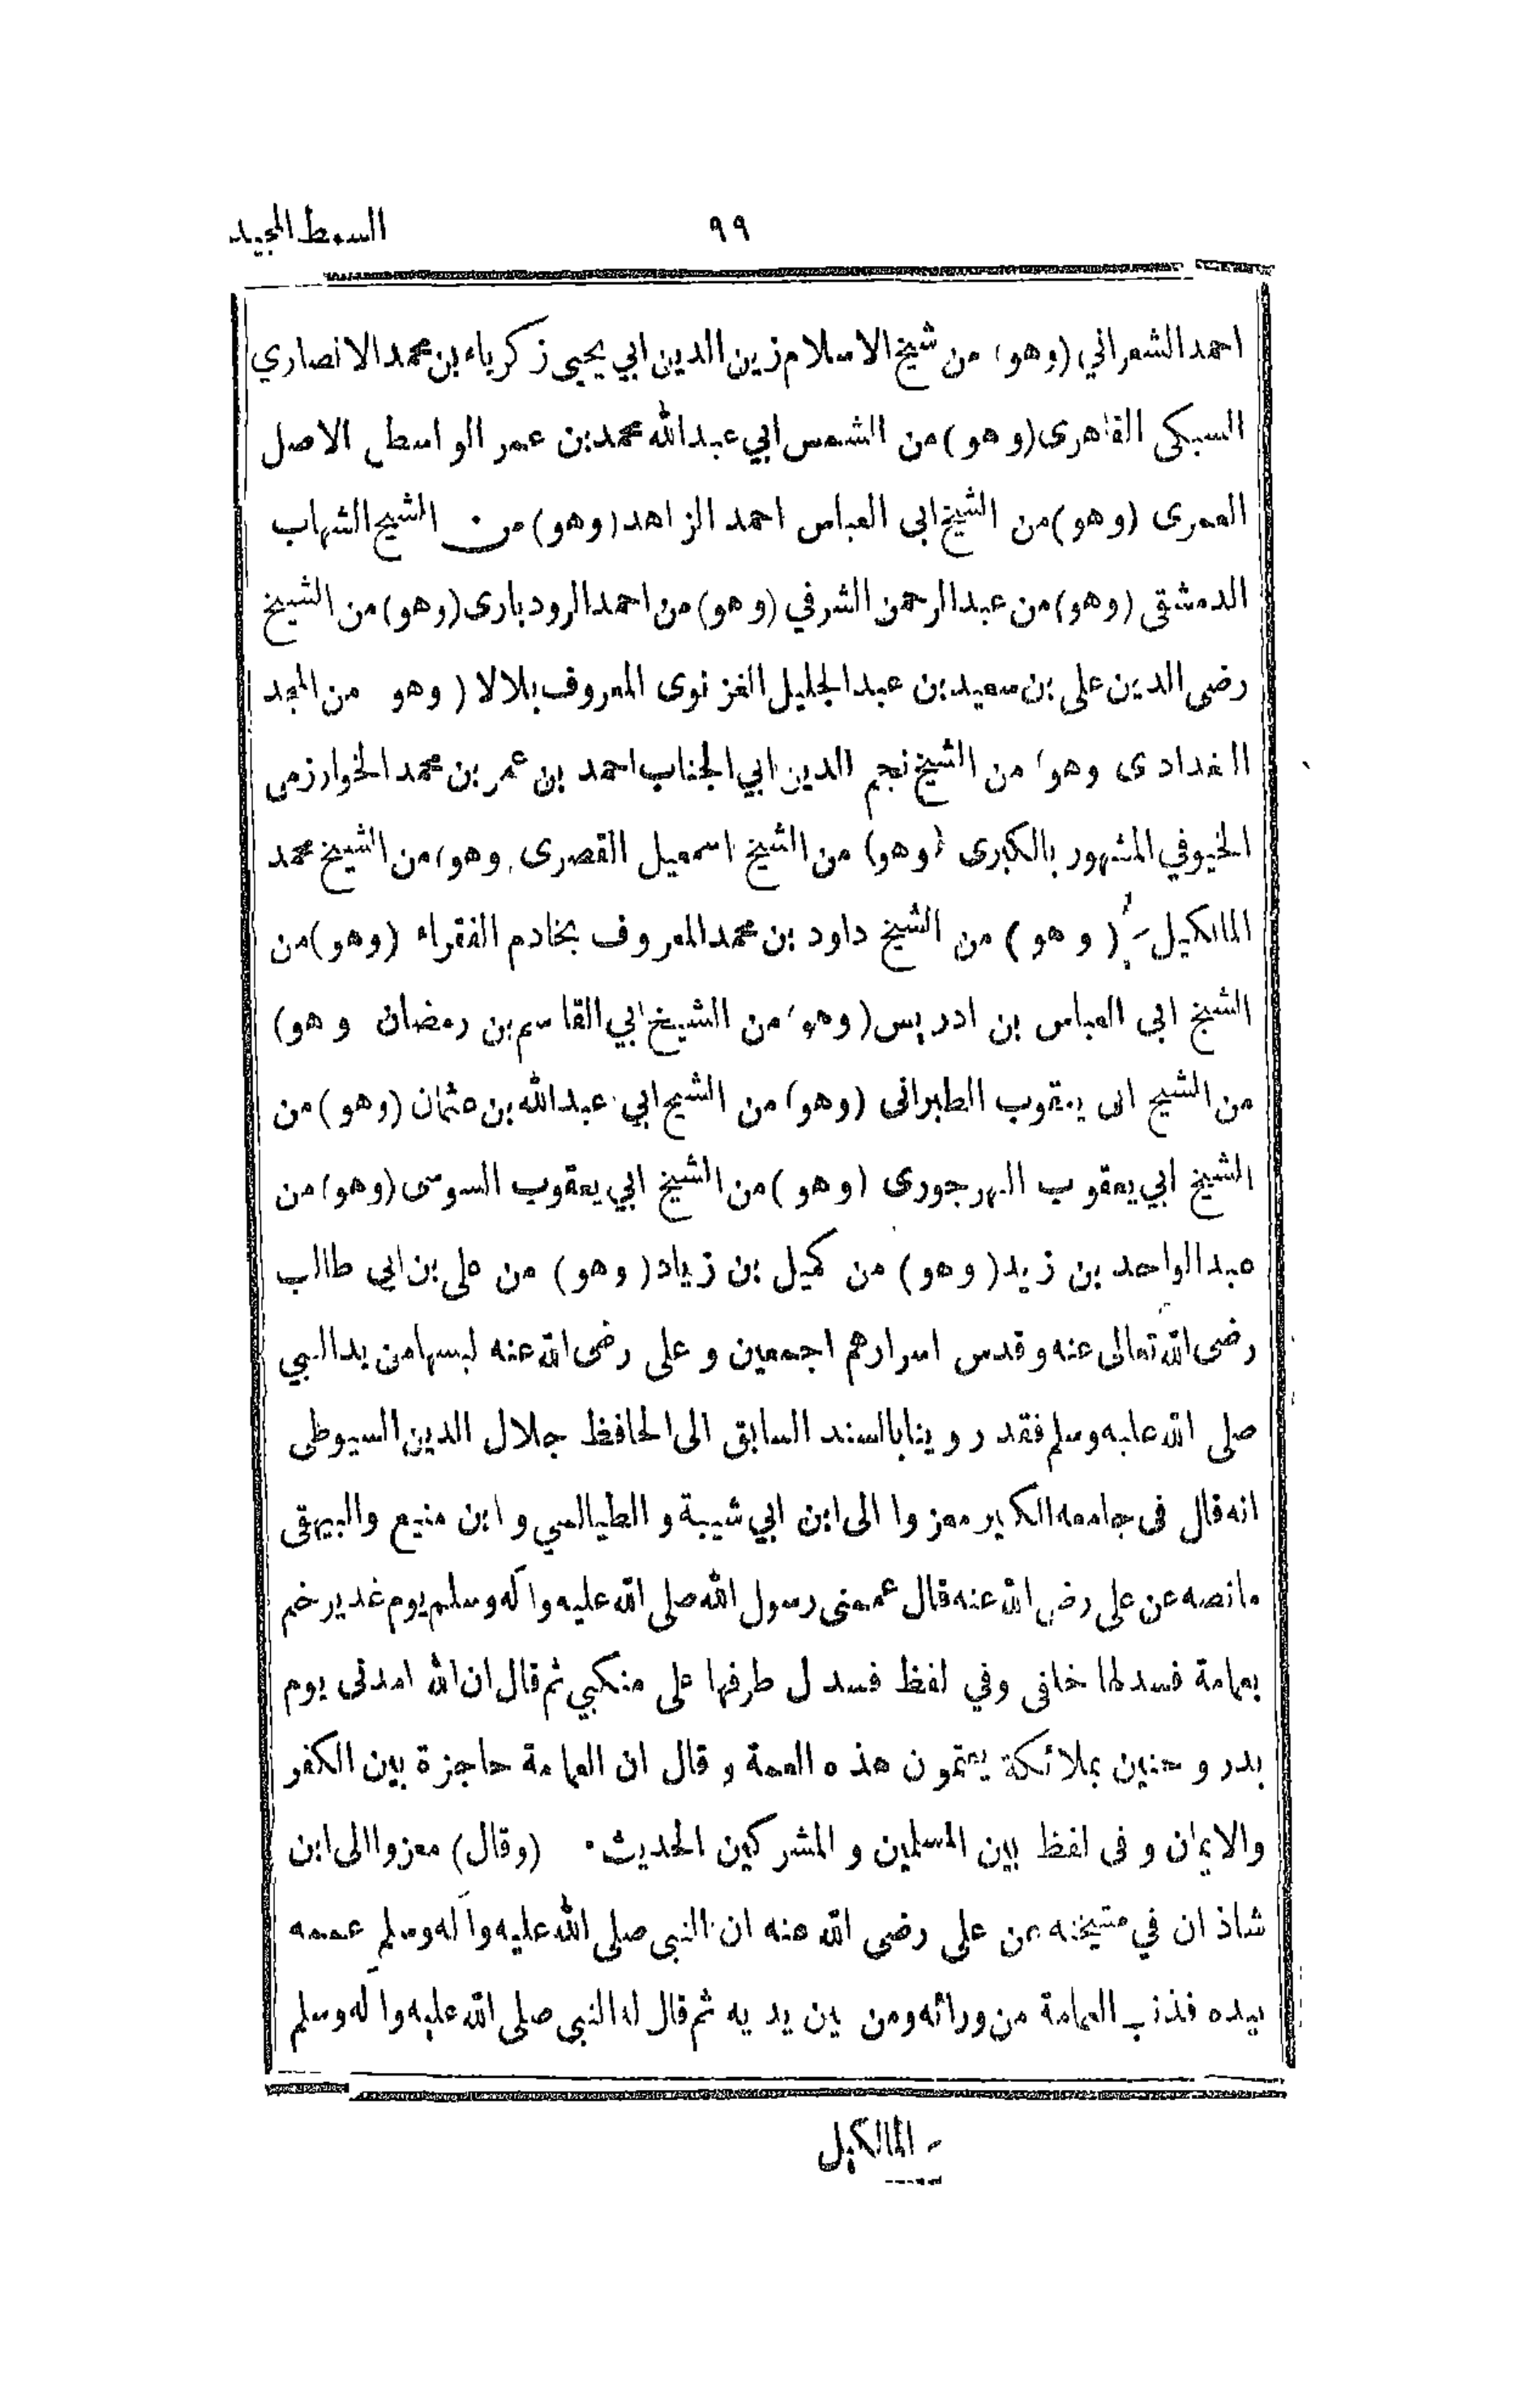 السمط المجيد ٩٩
احمد الشعراني (وهو) من شيخ الاسلام زين الدين ابي يحيى زكرياء بن محمد الانصاري
السبكى القاهرى (وهو) من الشمس ابي عبدالله محمد بن عمر الواسطى الاصل
الغمرى (وهو) من الشيخ ابى العباس احمد الزاهد (وهو) من الشيخ الشهاب
الدمشقى (وهو) من عبدالرحمن الشرفي (وهو) من احمد الرودبارى (وهو) من الشيخ
رضى الدين على بن سعيد بن عبد الجليل الغزنوى المعروف بلالا (وهو من المجد
البغدادى وهو) من الشيخ نجم الدين ابي الجناب احمد بن عمر بن محمد الخوارزمى
الخيوفي المشهور بالكبرى (وهو) من الشيخ اسمعيل القصرى وهو) من الشيخ محمد
المالكيل (وهو) من الشيخ داود بن محمد المعروف بخادم الفقراء (وهو) من
الشيخ ابى العباس بن ادريس (وهو) من الشيخ ابي القاسم بن رمضان وهو)
من الشيخ ابى يعقوب الطبرانى (وهو) من الشيخ ابي عبدالله بن عثمان (وهو) من
الشيخ ابي يعقوب النهرجورى (وهو) من الشيخ ابي يعقوب السوسى (وهو) من
عبد الواحد بن زيد (وهو) من كميل بن زياد (وهو) من على بن ابى طالب
رضى الله تعالى عنه وقدس اسرارهم اجمعين وعلى رضى الله عنه لبسها من يد النبي
صلى الله عليه وسلم فقد روينا بالسند السابق الى الحافظ جلال الدين السيوطى
انه قال فى جامعه الكبير معزوا الى ابن ابي شيبة والطيالسي وابن منيع والبيهقى
مانصه عن على رضى الله عنه قال عممنى رسول الله صلى الله عليه وآله وسلم يوم غدير خم
بعمامة فسدلها خلفى وفي لفظ فسدل طرفها على منكبي ثم قال ان الله امدنى يوم
بدر وحنين بملائكة يعتمون هذه العمة وقال ان العمامة حاجزة بين الكفر
والايمان وفى لفظ بين المسلمين والمشركين الحديث٠ (وقال) معزوا الى ابن
شاذان في مشيخته عن على رضى الله عنه ان النبى صلى الله عليه وآله وسلم عممه
بيده فذنب العمامة من ورائه ومن بين يديه ثم قال له النبى صلى الله عليه وآله وسلم
المالكيل